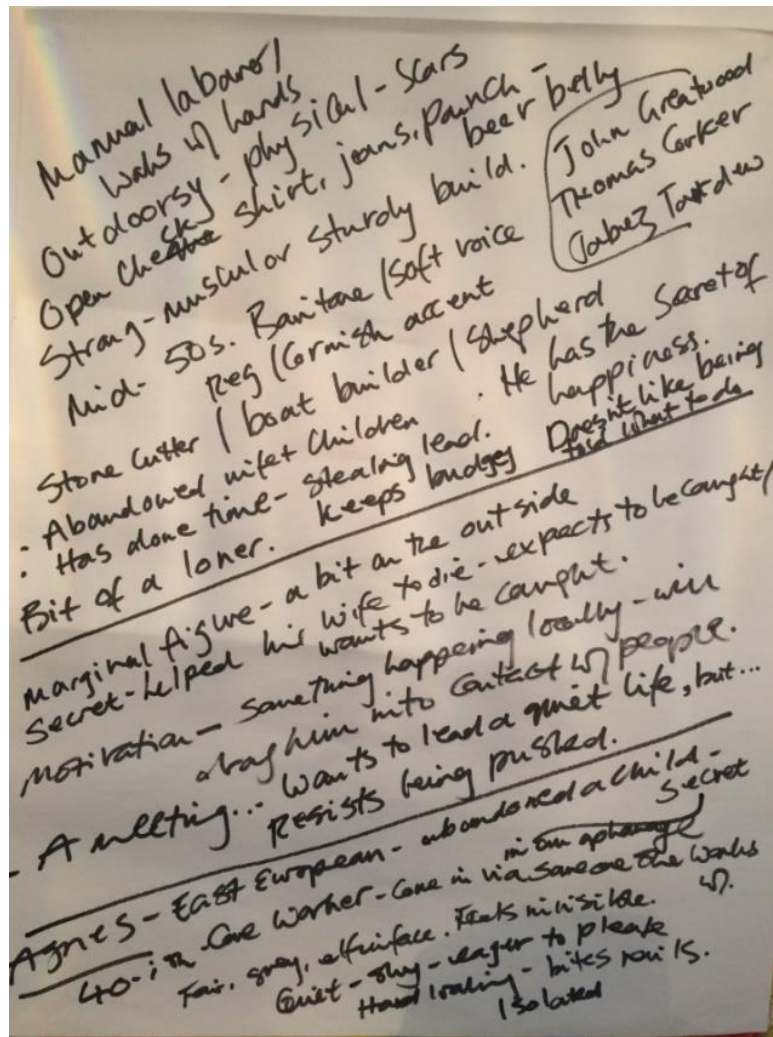 Manual labourer/
works w/ hands
Outdoorsy - physical - scars
Open check shirt, jeans, paunch -
beer belly
Strong - muscular sturdy build.
John Greatwood
Thomas Corker
Jabez
Mid - 50s. Baritone / Soft voice
Reg / Cornish accent
Stone cutter / boat builder / Shepherd
: Abandoned wife + children. He has the secret of
happiness.
: Has done time - stealing lead.
Bit of a loner. keeps budgies Doesn't like being
told what to do
marginal figure - a bit on the outside
Secret - helped his wife to die - expects to be caught/
wants to be caught.
Motivation - Something happening locally - will
drag him into contact w/ people.
- A meeting... wants to lead a quiet life, but...
Resists being pushed.
Agnes - East European - abandoned a child -
Secret
in an orphanage
40-ish. Care worker - came in via someone she works
w/.
Fair, grey, elfin face. Feels invisible.
Quiet - shy - eager to please
Hard looking - bites nails.
Isolated